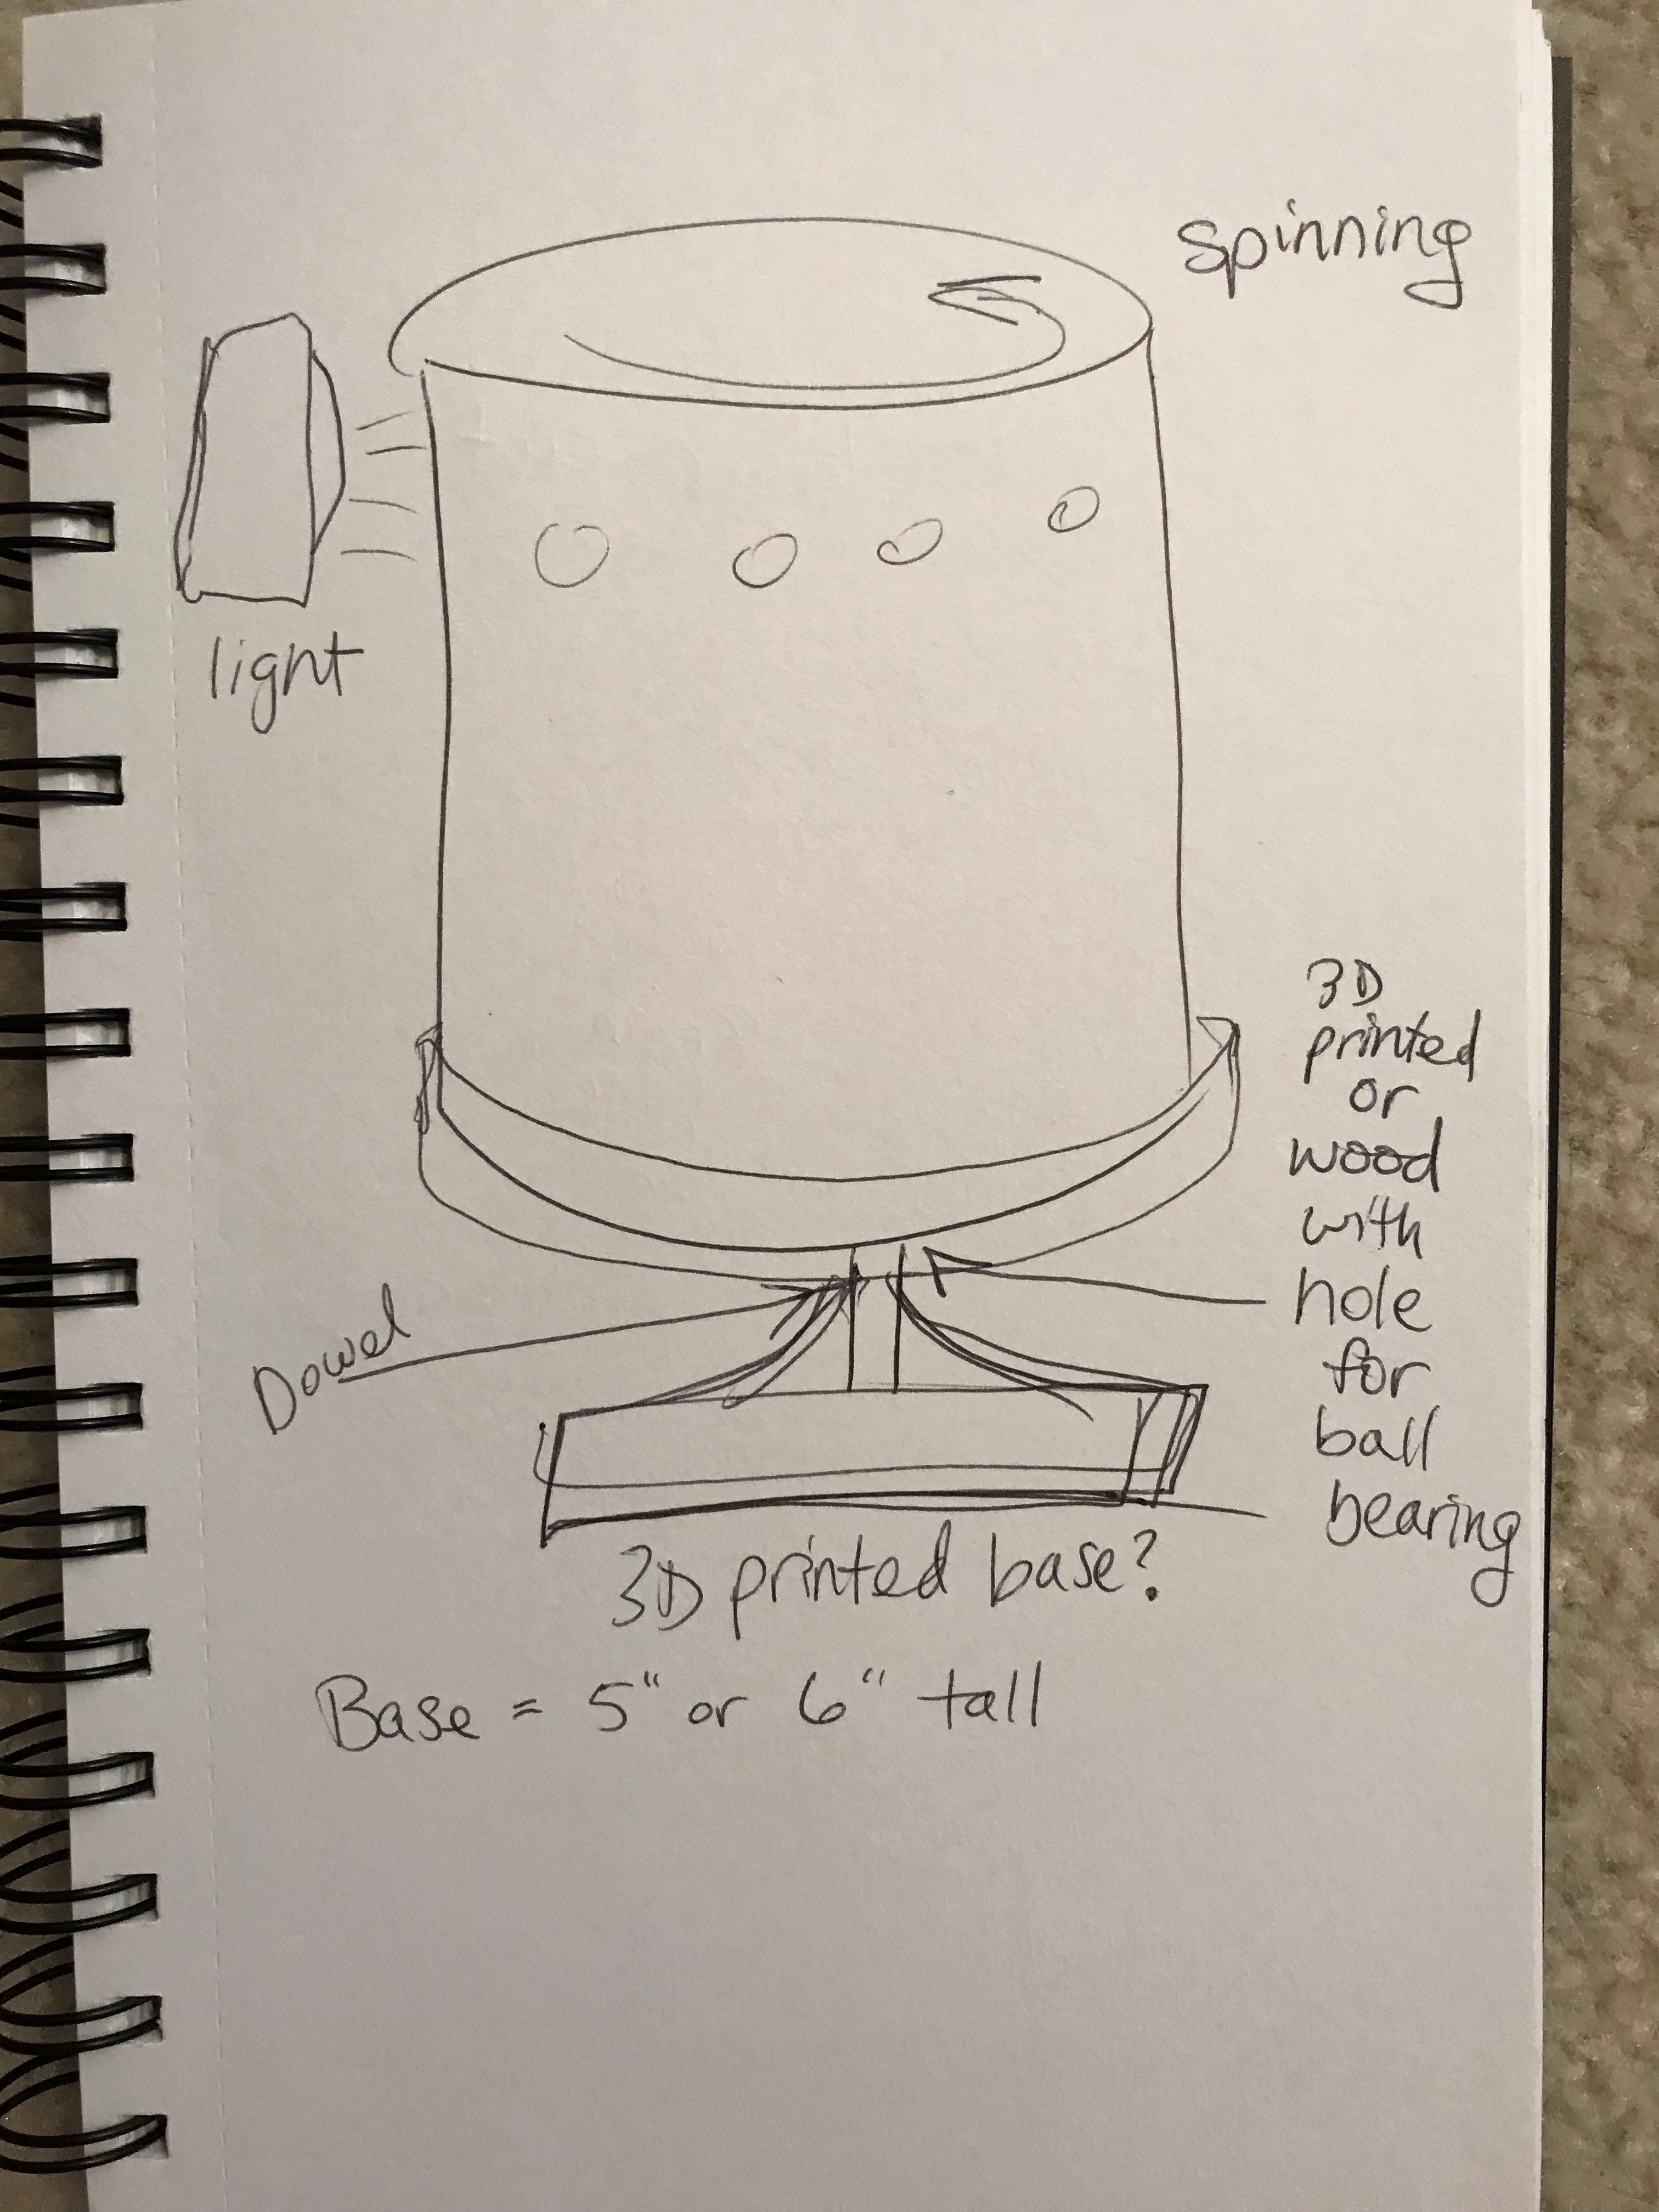 spinning
light
3D
printed
or
wood
with
hole
for
ball
bearing
Dowel
3D printed base?
Base = 5" or 6" tall